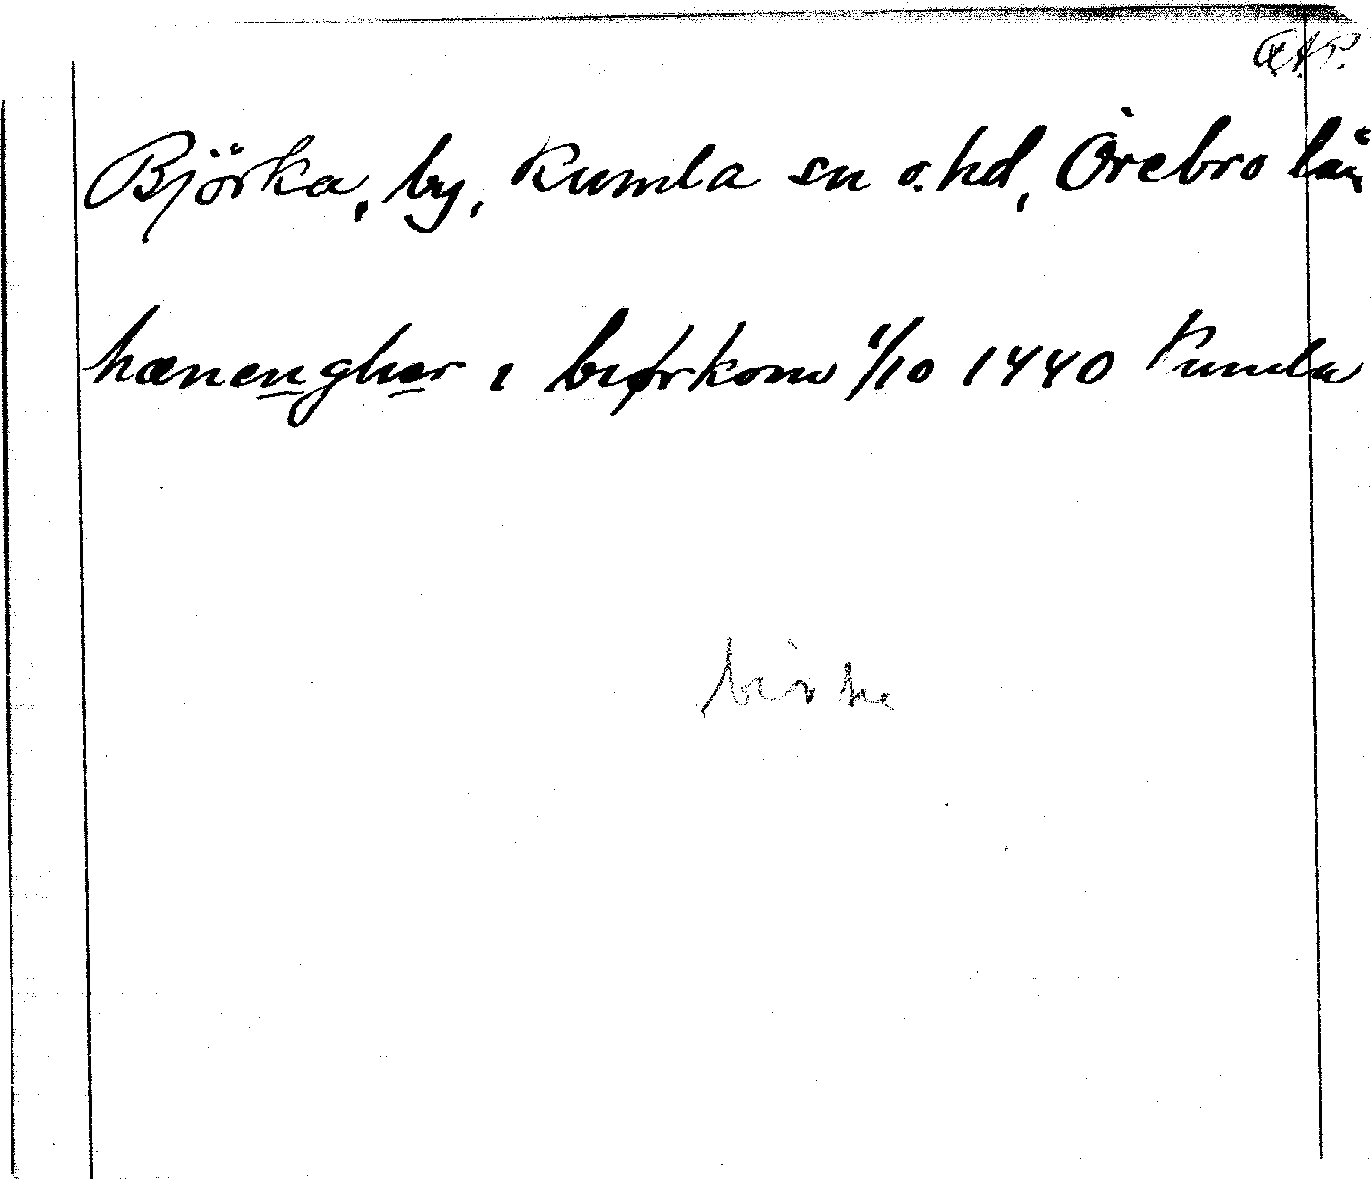 Björka, by, Kumla sn o. hd, Örebro län
hænengher i biørkom 1/10 1440 Kumla